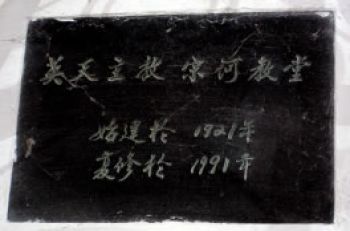 天主教 宗河教堂
始建於 1921年
复修於 1991年